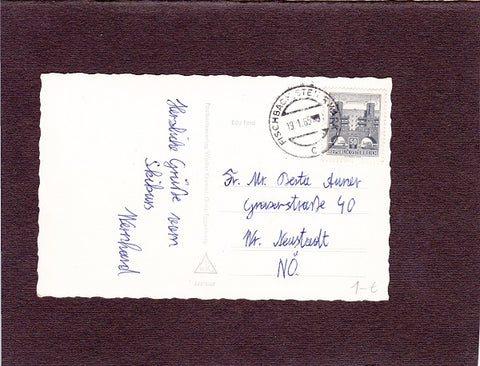 Herzliche Grüße vom
Skikurs
Bernhard
Echt Foto
FISCHBACH, STEIERMARK
19.1.65
C
REPUBLIK ÖSTERREICH
Grazerstraße 40
Wr. Neustadt
NÖ.
1-€